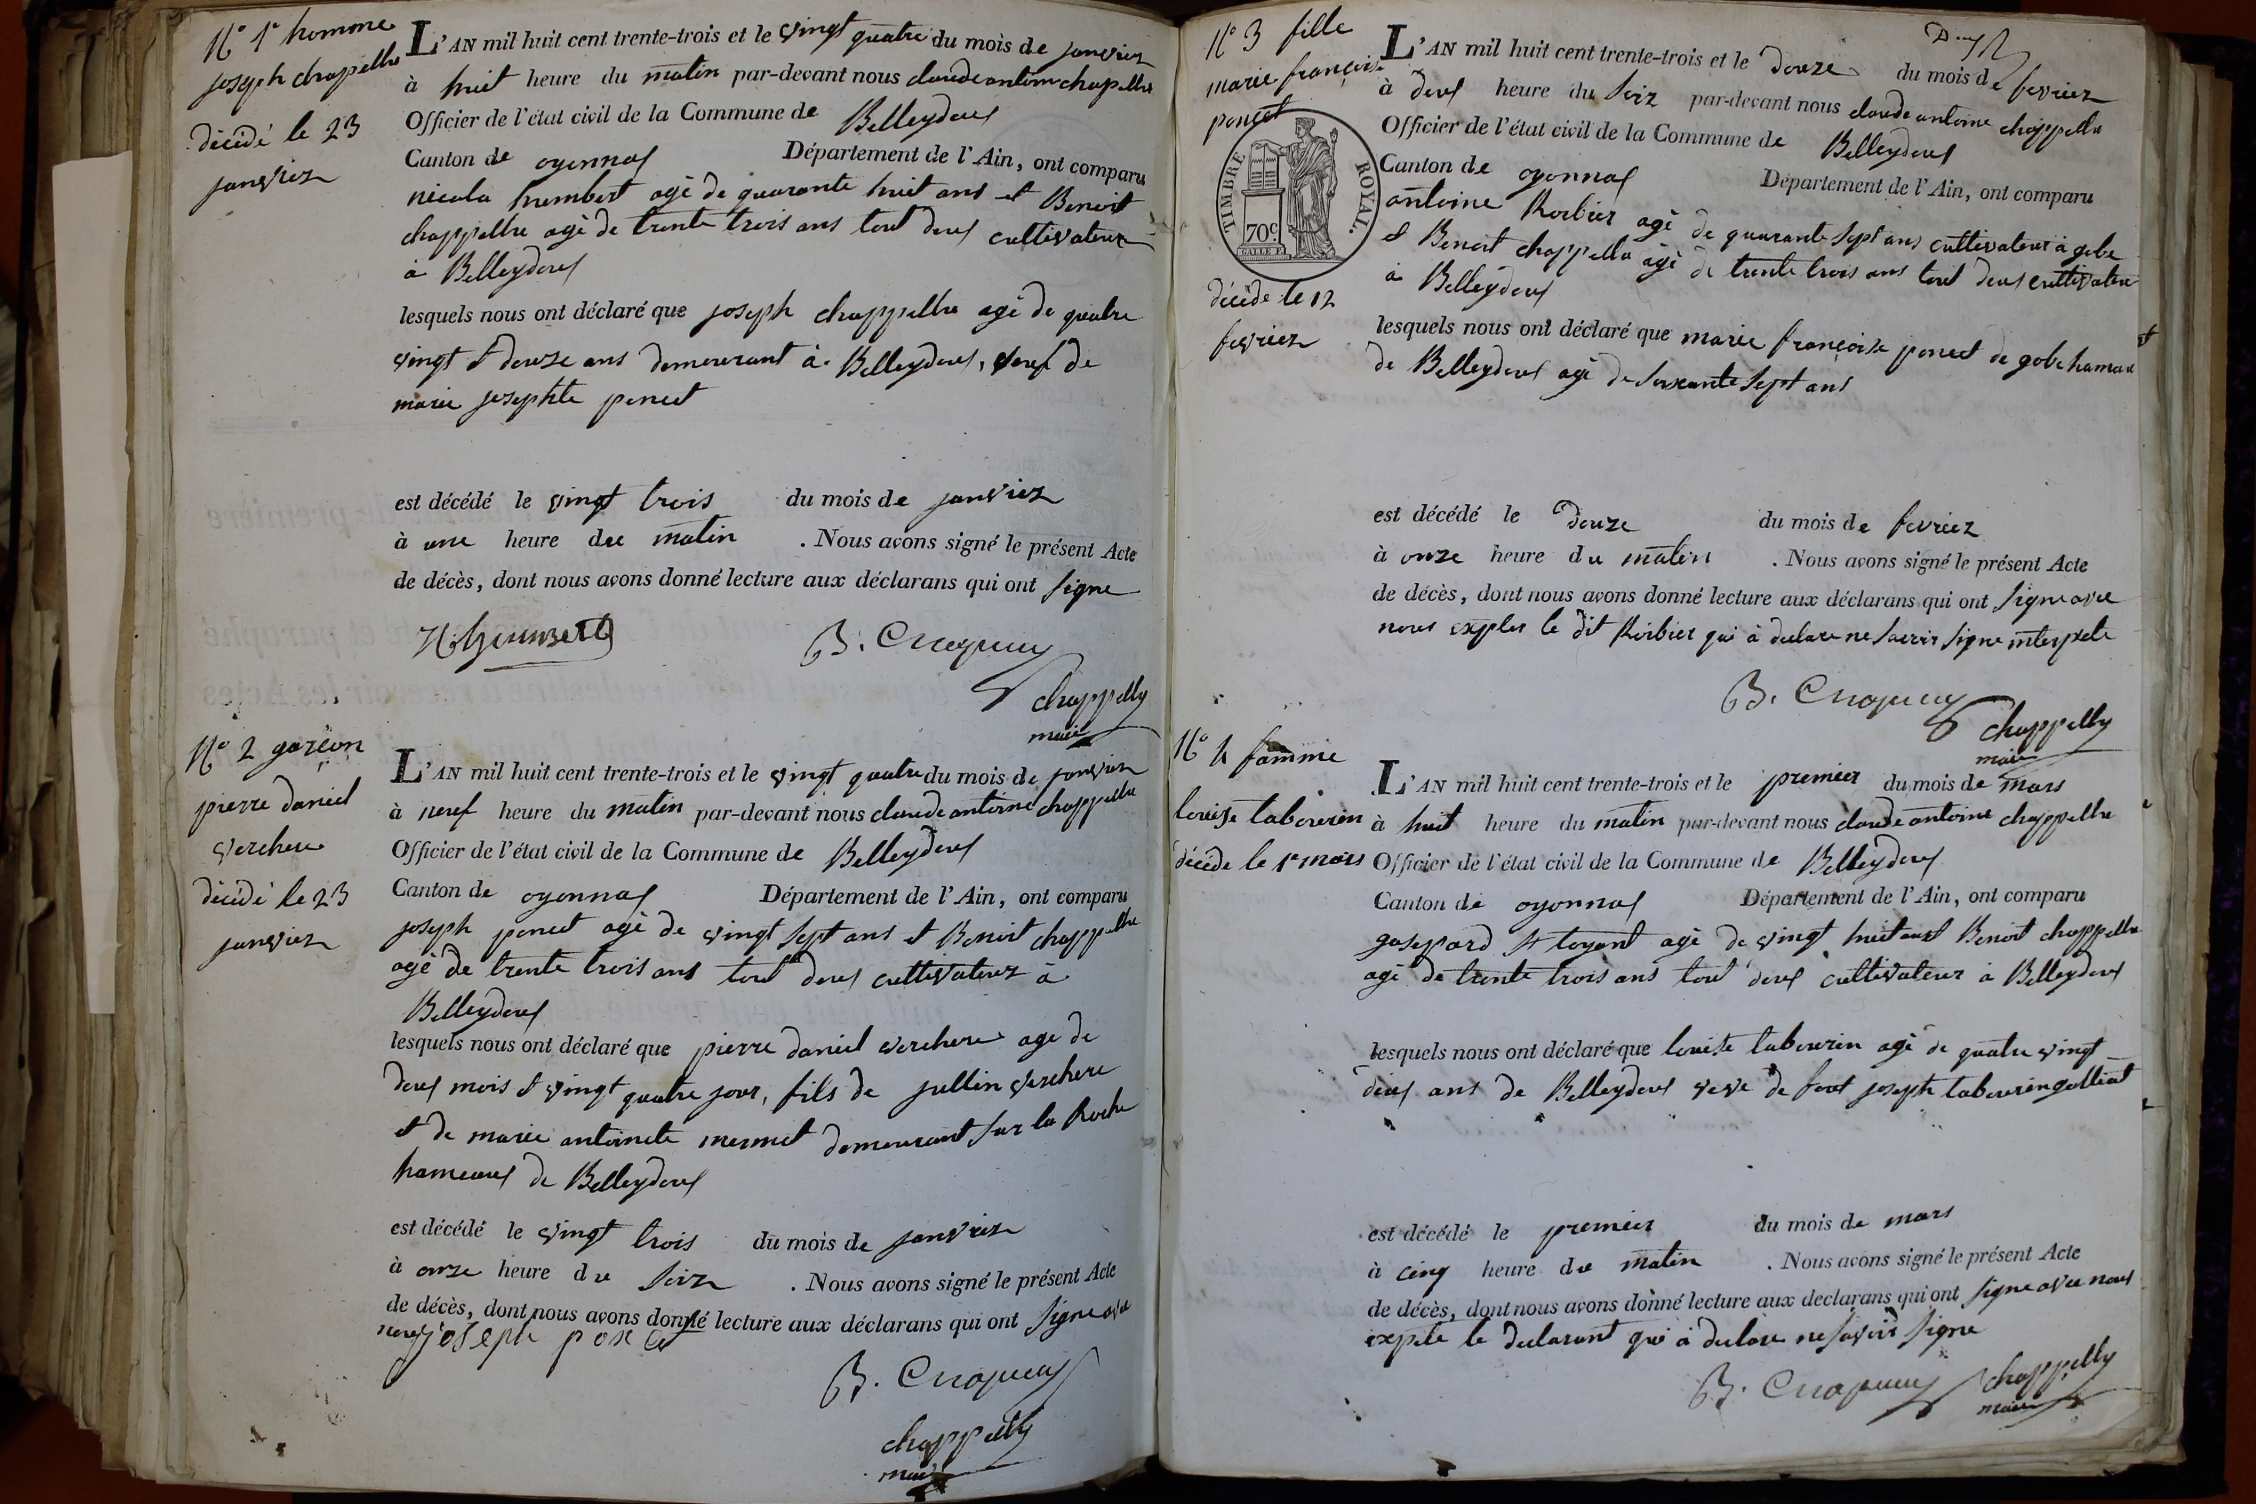 N° 1er homme
joseph chapellu
décédé le 23
janvier
L'AN mil huit cent trente-trois et le vingt quatre du mois de janvier
à huit heure du matin par-devant nous claude antoine chapellu
Officier de l'état civil de la Commune de Belleydoux
Canton de oyonnax Département de l'Ain, ont comparu
nicola humbert agé de quarante huit ans et Benoit
chappellu agé de trente trois ans tout deux cultivateur
à Belleydoux
lesquels nous ont déclaré que joseph chappellu agé de quatre
vingt et douze ans demeurant à Belleydoux, veuf de
marie josephte poncet
est décédé le vingt trois du mois de janvier
à une heure du matin . Nous avons signé le présent Acte
de décès, dont nous avons donné lecture aux déclarans qui ont signe
N. humbert
chappellu
maire
N° 2 garçon
pierre daniel
verchere
décidé le 23
janvier
L'AN mil huit cent trente-trois et le vingt quatre du mois de janvier
à neuf heure du matin par-devant nous claude antoine chappellu
Officier de l'état civil de la Commune de Belleydoux
Canton de oyonnax Département de l'Ain, ont comparu
joseph poncet agé de vingt sept ans et Benoit chappellu
agé de trente trois ans tout deux cultivateur à
Belleydoux
lesquels nous ont déclaré que pierre daniel verchere age de
deux mois et vingt quatre jour, fils de jullien verchere
et de marie antoinete mermet demeurant sur la Roche
hameaux de Belleydoux
est décédé le vingt trois du mois de janvier
à onze heure du soir . Nous avons signé le présent Acte
de décès, dont nous avons donné lecture aux déclarans qui ont signe avec
nous joseph poncet
chappellu
maire
N° 3 fille
marie françoise
poncet
TIMBRE ROYAL.
70c
décédé le 12
fevrier
L'AN mil huit cent trente-trois et le douze du mois de fevrier
à deux heure du soir par-devant nous claude antoine chappellu
Officier de l'état civil de la Commune de Belleydoux
Canton de oyonnax Département de l'Ain, ont comparu
antoine Rorbier agé de quarante sept ans cultivateur à gobe
et Benoit chappellu agé de trente trois ans tout deux cultivateur
à Belleydoux
lesquels nous ont déclaré que marie françoise poncet de gobe hamau
de Belleydoux agé de soixante sept ans
est décédé le douze du mois de fevrier
à onze heure du matin . Nous avons signé le présent Acte
de décès, dont nous avons donné lecture aux déclarans qui ont signe avec
nous le dit Rorbier qui à declare ne savoir signe interpele
chappellu
maire
N° 4 famme
louise tabourin
décédé le 1er mars
L'AN mil huit cent trente-trois et le premier du mois de mars
à huit heure du matin par-devant nous claude antoine chappellu
Officier de l'état civil de la Commune de Belleydoux
Canton de oyonnax Département de l'Ain, ont comparu
gaspard agé de vingt huit ans et Benoit chappellu
agé de trente trois ans tout deux cultivateur à Belleydoux
lesquels nous ont déclaré que louise tabourin agé de quatre vingt
deux ans de Belleydoux veve de feut joseph tabourin
est décédé le premier du mois de mars
à cinq heure du matin . Nous avons signé le présent Acte
de décès, dont nous avons donné lecture aux declarans qui ont signe avec nous
le declarant qui à declare ne savoir signe
chappellu
maire